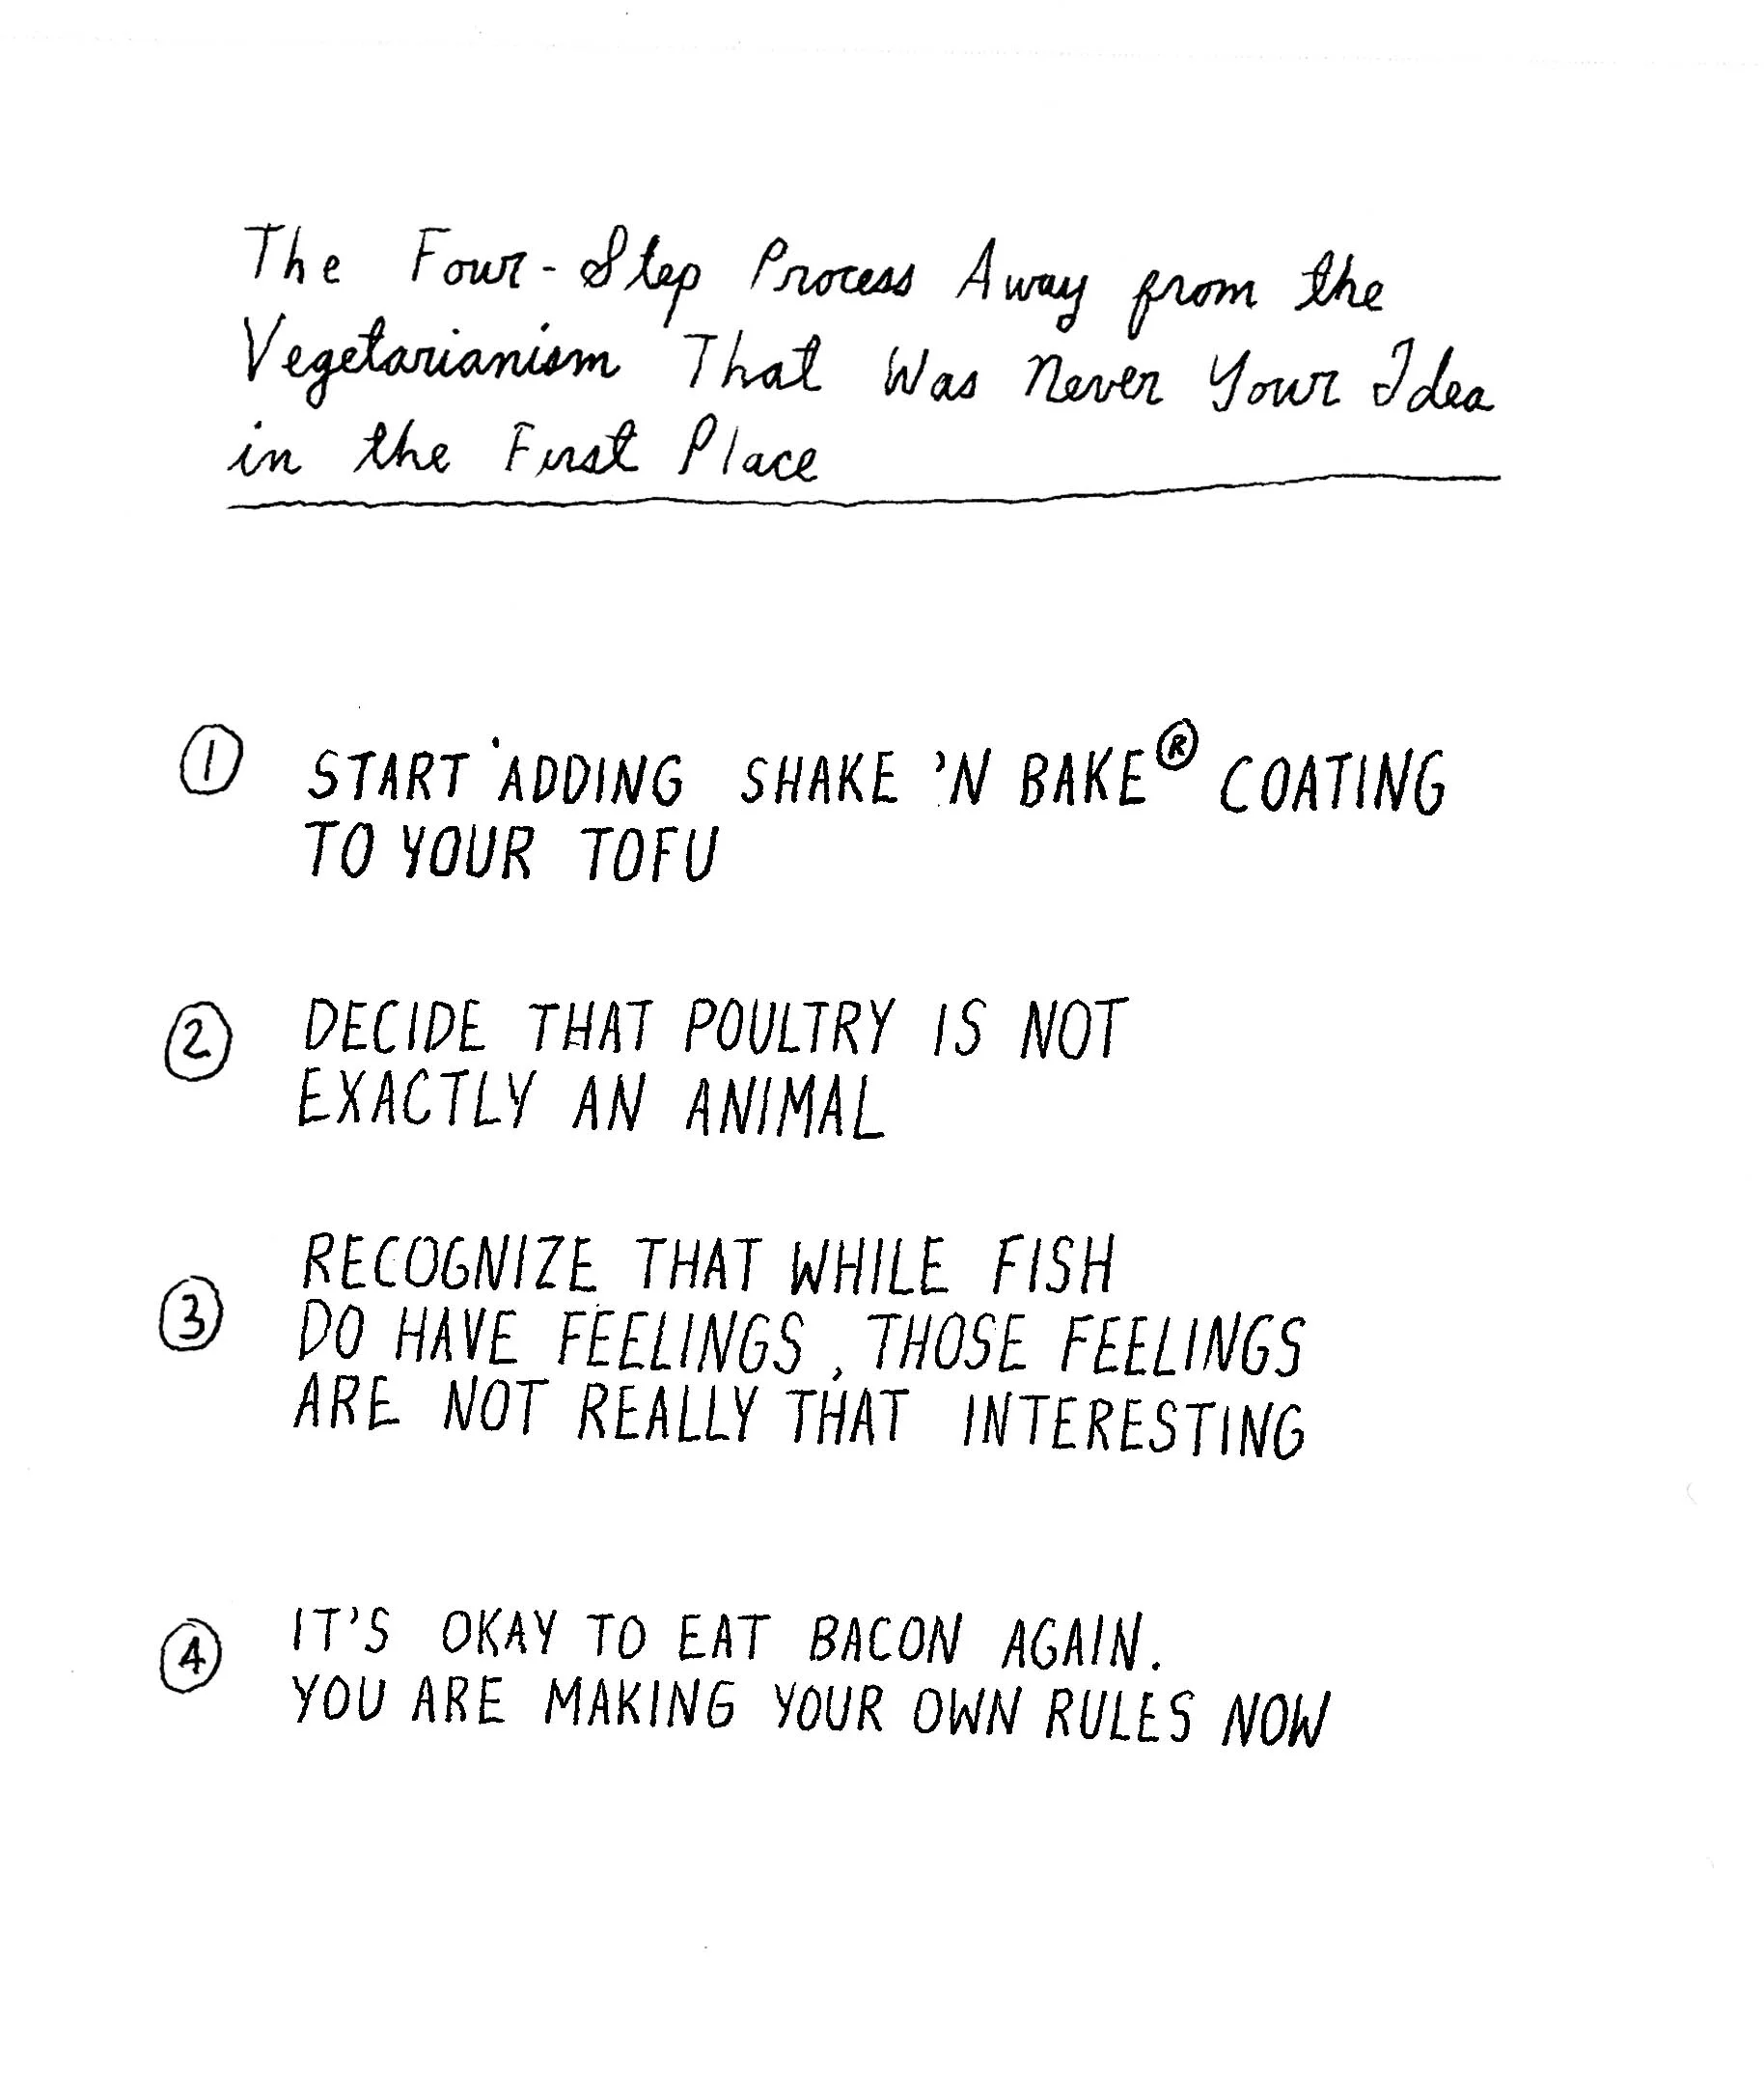 The Four-Step Process Away from the
Vegetarianism That Was Never Your Idea
in the First Place
① START ADDING SHAKE 'N BAKE® COATING
TO YOUR TOFU
② DECIDE THAT POULTRY IS NOT
EXACTLY AN ANIMAL
③ RECOGNIZE THAT WHILE FISH
DO HAVE FEELINGS, THOSE FEELINGS
ARE NOT REALLY THAT INTERESTING
④ IT'S OKAY TO EAT BACON AGAIN.
YOU ARE MAKING YOUR OWN RULES NOW